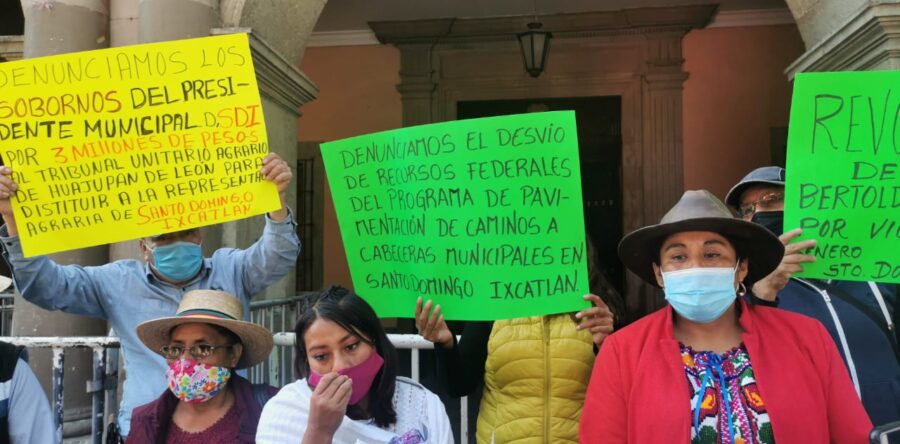 DENUNCIAMOS LOS
SOBORNOS DEL PRESI-
DENTE MUNICIPAL D SDI
POR 3 MILLONES DE PESOS
AL TRIBUNAL UNITARIO AGRARIO
DE HUAJUPAN DE LEÓN PARA
DISTITUIR A LA REPRESENTA
AGRARIA DE SANTO DOMINGO
IXCATLAN
DENUNCIAMOS EL DESVIO
DE RECURSOS FEDERALES
DEL PROGRAMA DE PAVI-
MENTACIÓN DE CAMINOS A
CABECERAS MUNICIPALES EN
SANTO DOMINGO IXCATLAN.
REVO
DE
BERTOLD
POR VIO
ENERO
STO. DO